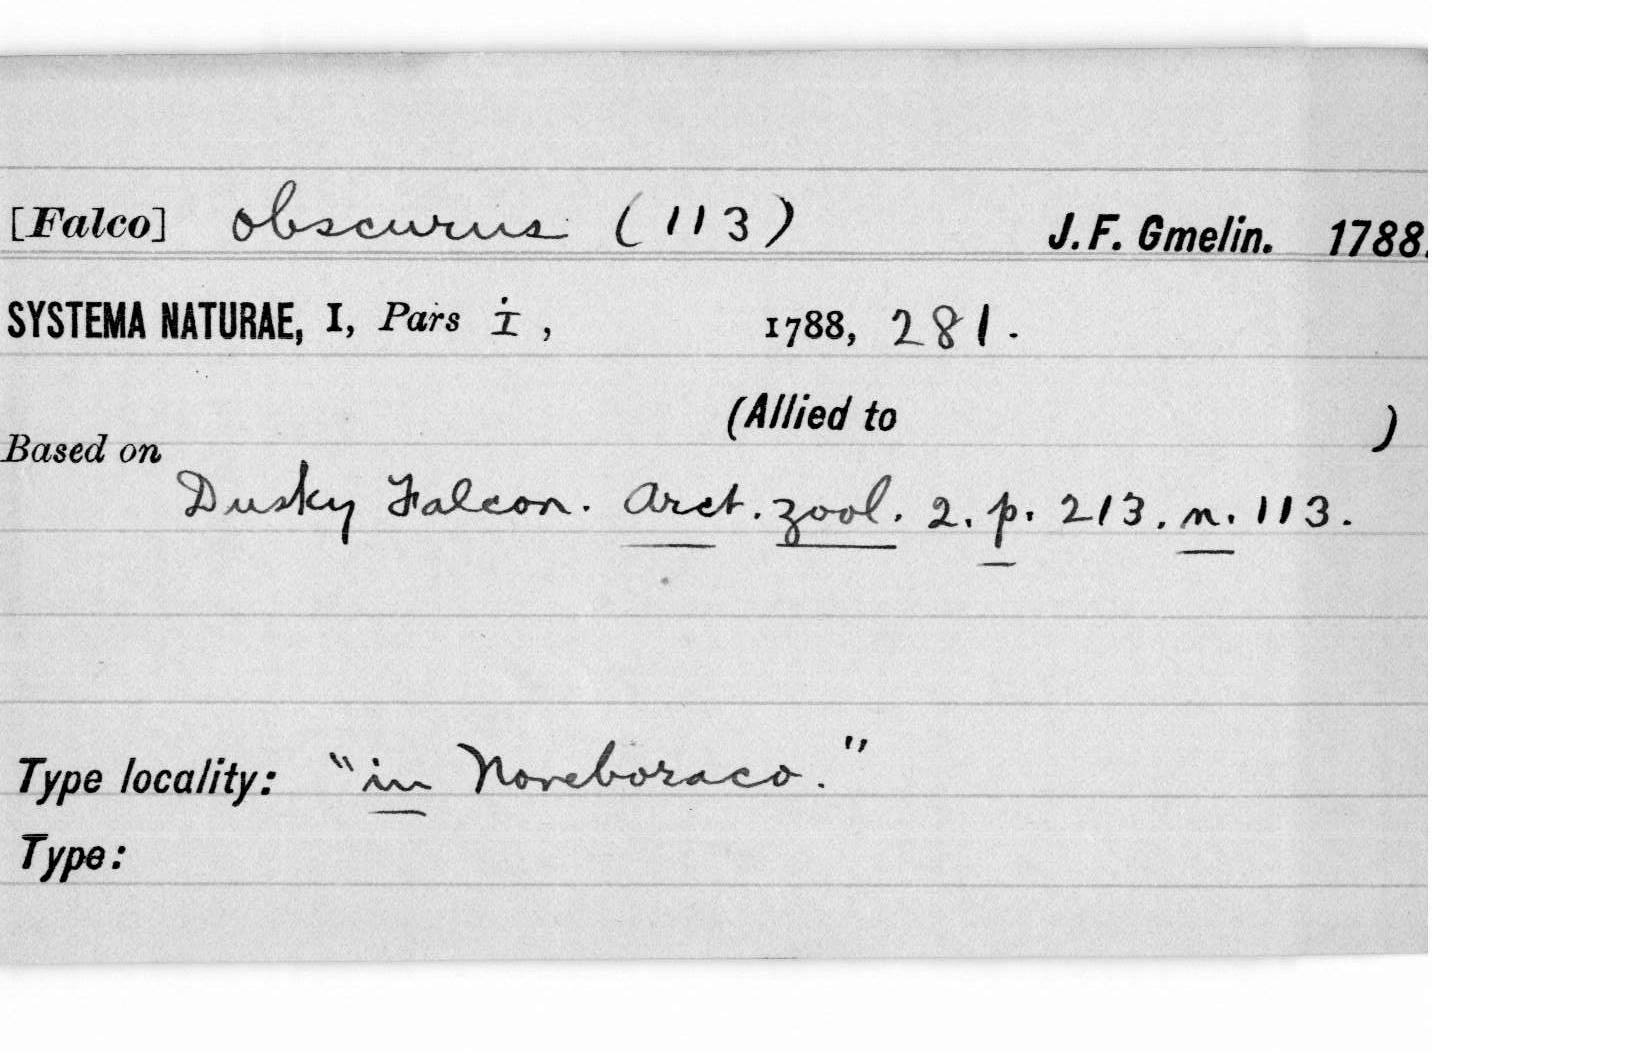 [Falco] obscurus (113) J. F. Gmelin. 1788.
SYSTEMA NATURAE, I, Pars i, 1788, 281.
(Allied to )
Based on
Dusky Falcon. Arct. zool. 2. p. 213. n. 113.
Type locality: "in Noveboraco."
Type: